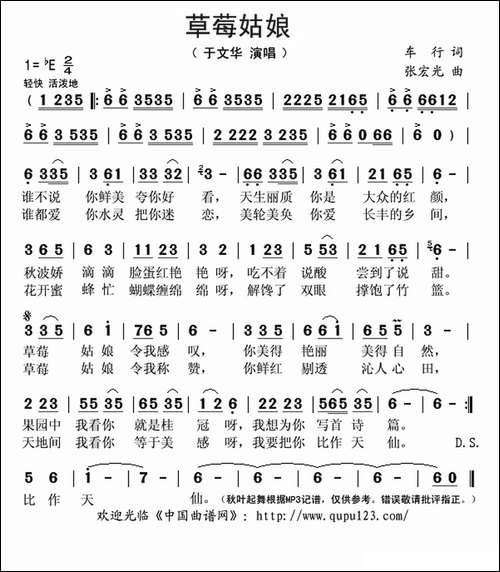 草莓姑娘
（于文华 演唱）
1= ♭E 2/4
车 行 词
轻快 活泼地
张宏光 曲
( 1 235 ‖: 6 6 3535 | 6 6 3535 | 2225 2165 | 6 6 6612 |
6 6 3535 | 6 6 3535 | 2 222 3 235 | 6 6 0 66 | 6 0 ) |
6 335 | 3 61 | 33 32 | 3 - | 66 335 | 3 61 | 2165 | 6 - |
谁不说 你鲜美 夸你好 看，天生丽质 你是 大众的红 颜，
谁都爱 你水灵 把你迷 恋，美轮美奂 你爱 长丰的乡 间，
3 6 5 | 6 3 | 11 23 | 3 - | 1 23 | 5 53 | 21 65 | 6 - |
秋波娇 滴滴 脸蛋红艳 艳呀，吃不着 说酸 尝到了说 甜。
花开蜜 蜂忙 蝴蝶缠绵 绵呀，解馋了 双眼 撑饱了竹 篮。
3 3 5 | 6 1 | 76 5 | 6 - | 33 5 | 6 61 | 5 65 | 3 - |
草莓 姑娘 令我感 叹，你美得 艳丽 美得自然，
草莓 姑娘 令我称 赞，你鲜红 剔透 沁人心田，
2 23 | 55 35 | 63 5 | 6 1 | 2 23 | 565 35 | 6 - | 6 - :‖
果园中 我看你 就是桂 冠呀，我想为你 写首诗 篇。
天地间 我看你 等于美 感呀，我要把你 比作天 仙。 D.S.
5 6 | 1 - | 7 - | 6 - | 6 - | 6 - | 6 0 ‖
比作 天 仙。（秋叶起舞根据MP3记谱，仅供参考。错误敬请批评指正。）
欢迎光临《中国曲谱网》：http://www.qupu123.com/